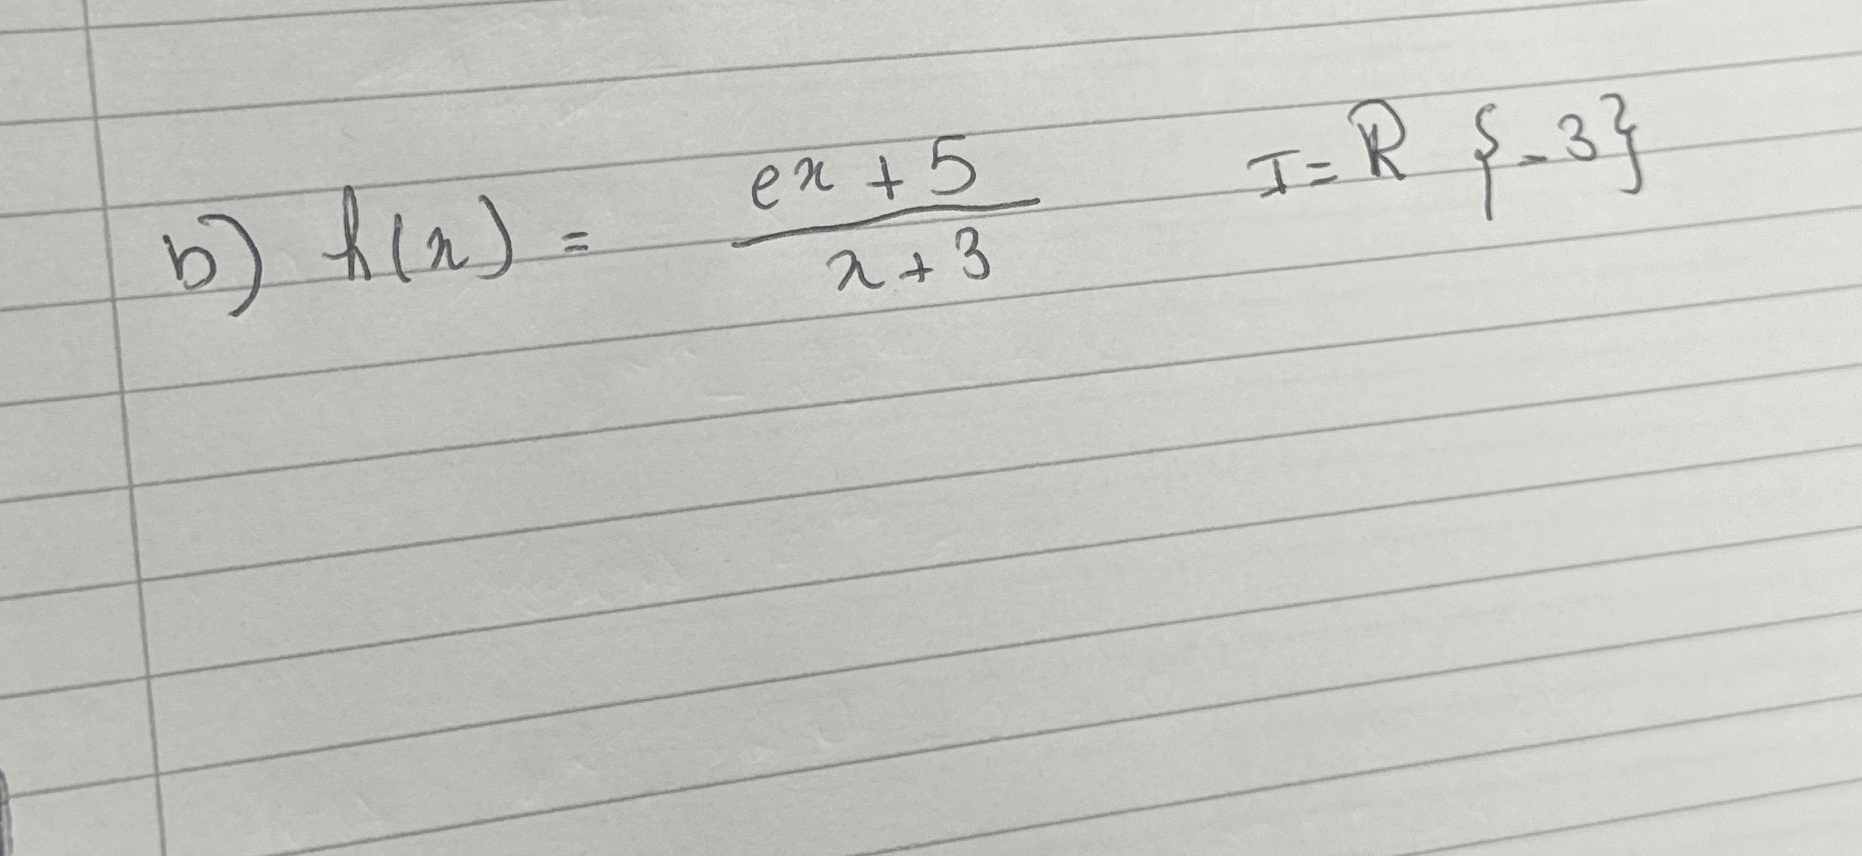 b) h(x) = \frac{ex + 5}{x + 3} I = ℝ {-3}